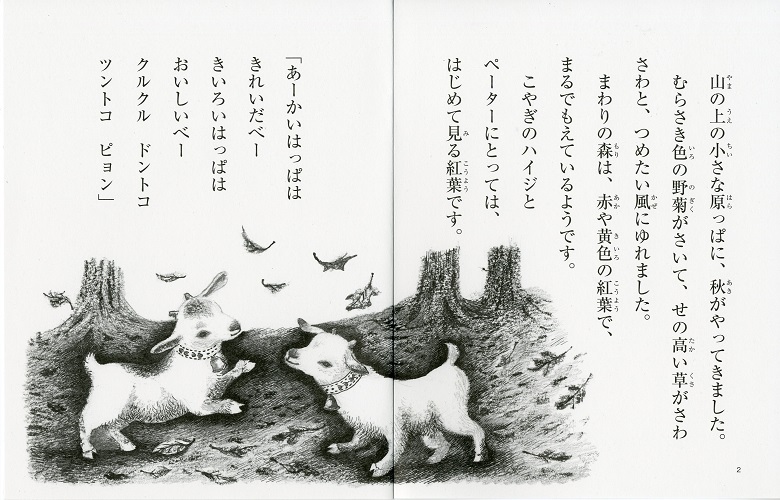 山の上の小さな原っぱに、秋がやってきました。
むらさき色の野菊がさいて、せの高い草がさわ
さわと、つめたい風にゆれました。
まわりの森は、赤や黄色の紅葉で、
まるでもえているようです。
こやぎのハイジと
ペーターにとっては、
はじめて見る紅葉です。
「あーかいはっぱは
きれいだべー
きいろいはっぱは
おいしいべー
クルクル ドントコ
ツントコ ピョン」
2